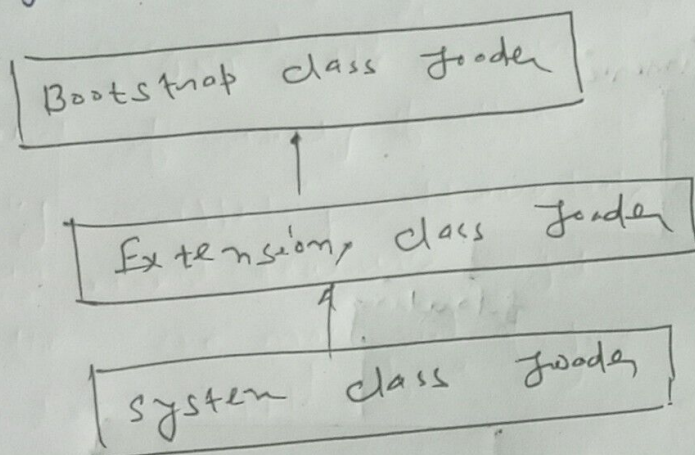 Bootstrap class loader
Extension class loader
System class loader